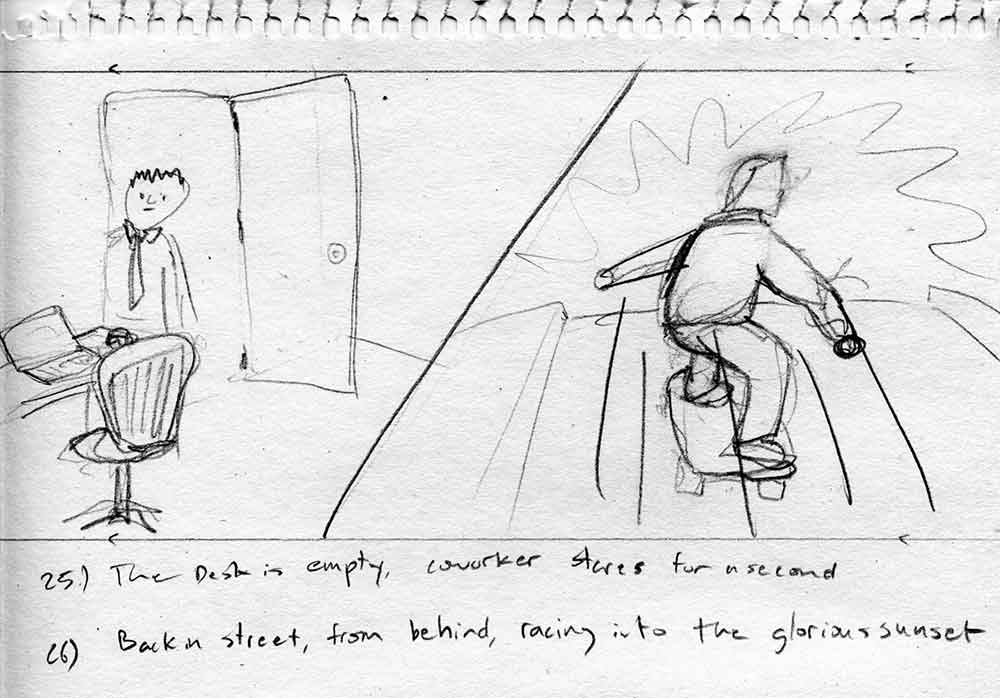 25.) The Desk is empty, coworker stares for a second
26) Back in street, from behind, racing into the glorious sunset